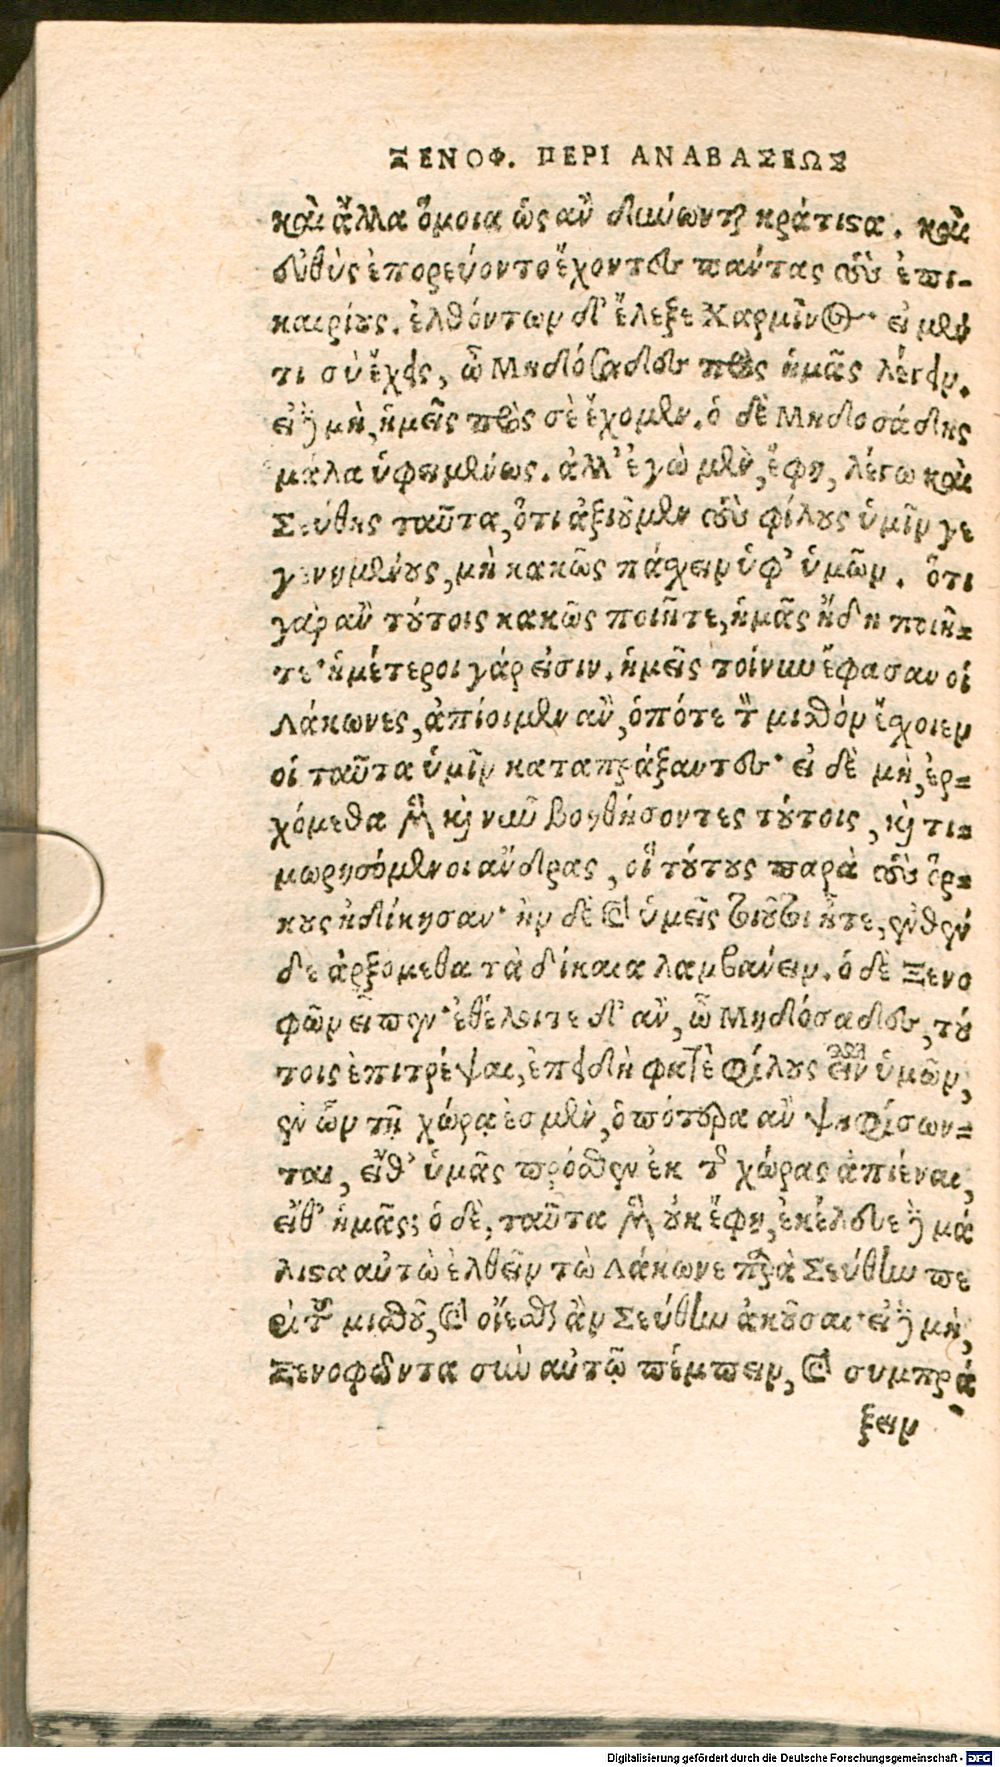 ΞΕΝΟΦ. ΠΕΡΙ ΑΝΑΒΑΣΕΩΣ
καὶ ἄλλα ὅμοια ὡς ἂν δύνωνται κράτιστα. καὶ
εὐθὺς ἐπορεύοντο ἔχοντες πάντας τοὺς ἐπι-
καιρίους. ἐλθόντων δ' ἔλεξε Χαρμῖνος· εἰ μέν
τι σὺ ἔχεις, ὦ Μηδόσαδες πρὸς ἡμᾶς λέγειν.
εἰ δὲ μὴ, ἡμεῖς πρὸς σὲ ἔχομεν. ὁ δὲ Μηδοσάδης
μάλα ὑφειμένως. ἀλλ' ἐγὼ μὲν, ἔφη, λέγω καὶ
Σεύθης ταῦτα, ὅτι ἀξιοῦμεν τοὺς φίλους ὑμῖν γε
γενημένους, μὴ κακῶς πάσχειν ὑφ' ὑμῶν. ὅτι
γὰρ ἂν τούτοις κακῶς ποιῆτε, ἡμᾶς ἤδη ποιῆ-
τε· ἡμέτεροι γάρ εἰσιν. ἡμεῖς τοίνυν ἔφασαν οἱ
Λάκωνες, ἀπίοιμεν ἂν, ὁπότε τὸν μισθὸν ἔχοιεν
οἱ ταῦτα ὑμῖν καταπράξαντες· εἰ δὲ μὴ, ἐρ-
χόμεθα μὲν καὶ νῦν βοηθήσοντες τούτοις, καὶ τι-
μωρησόμενοι ἄνδρας, οἳ τούτους παρὰ τοὺς ὅρ-
κους ἠδίκησαν· ἢν δὲ καὶ ὑμεῖς τοιοῦτοι ἦτε, ἐνθέν
δε ἀρξομεθα τὰ δίκαια λαμβάνειν. ὁ δὲ Ξενο
φῶν εἶπεν· ἐθέλοιτε δ' ἂν, ὦ Μηδόσαδες, τού
τοις ἐπιτρέψαι, ἐπειδὴ φατὲ φίλους εἶναι ὑμῶν,
ἐν ὧν τῇ χώρᾳ ἐσμὲν, ὁπότερα ἂν ψηφίσων-
ται, εἴθ' ὑμᾶς πρόσθεν ἐκ τῆς χώρας ἀπιέναι,
εἴθ' ἡμᾶς; ὁ δὲ, ταῦτα μὲν οὐκ ἔφη, ἐκέλευε δὲ μά
λιστα αὐτὼ ἐλθεῖν τὼ Λάκωνε παρὰ Σεύθην πε
ρὶ τοῦ μισθοῦ, καὶ οἴεσθαι ἂν Σεύθην ἀκοῦσαι· εἰ δὲ μὴ,
Ξενοφῶντα σὺν αὐτῷ πέμπειν, καὶ συμπρά
ξειν
Digitalisierung gefördert durch die Deutsche Forschungsgemeinschaft - DFG